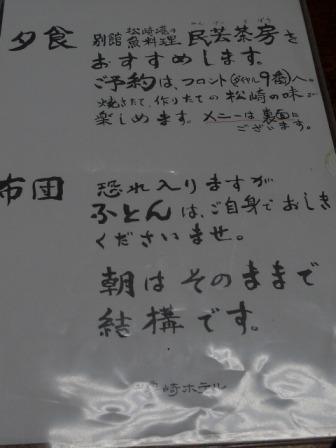 夕食
別館 松崎港の魚料理 民芸茶房を
みんげいさぼう
おすすめします。
ご予約は、フロント(ダイヤル9番)へ。
焼きたて、作りたての松崎の味が
楽しめます。メニューは裏面に
ございます。
布団
恐れ入りますが
ふとんは、ご自身でおしき
くださいませ。
朝はそのままで
結構です。
崎ホテル